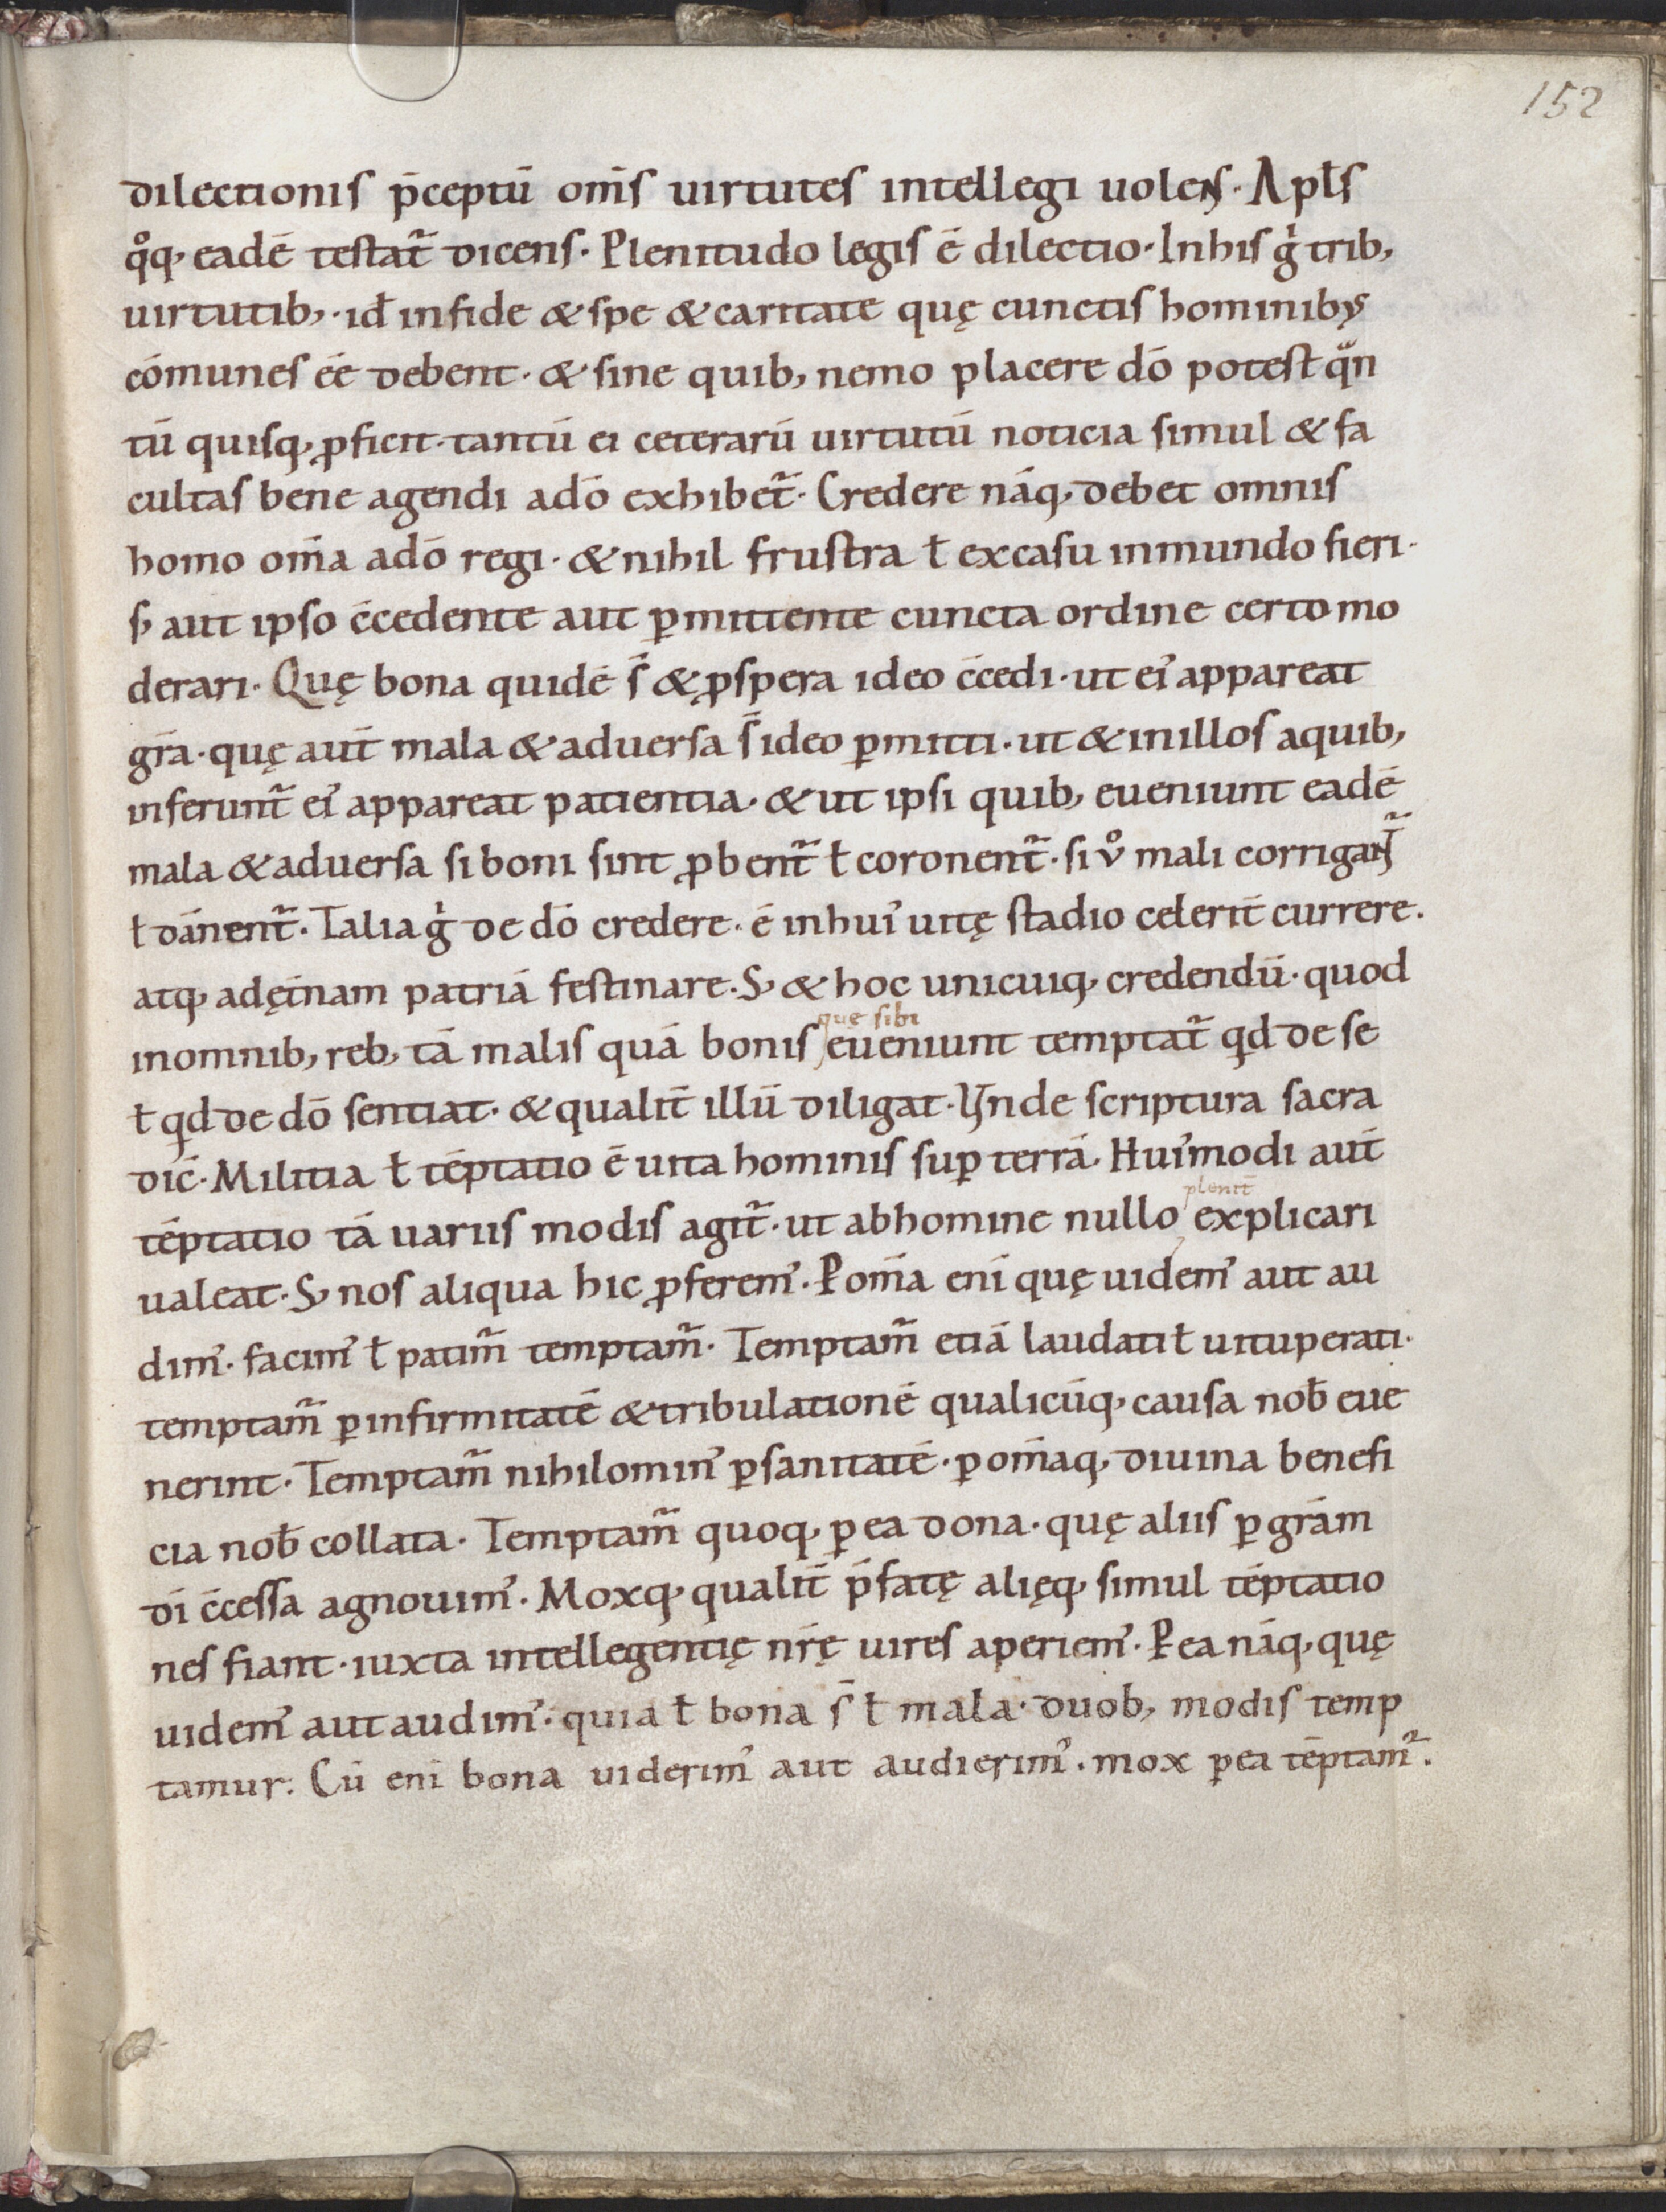 152
dilectionis p̄ceptū om̄s uirtutes intellegi uolens. Apłs
q̊q; eadē testat̃ dicens. Plenitudo legis ē dilectio. In his g̊ trib;
uirtutib; . id̄ in fide & spe & caritate quę cunctis hominibus
cōmunes ēe debent. & sine quib; nemo placere dō potest qᵃn
tū quisq; ꝓficit. tantū ei ceterarū uirtutū noticia simul & fa
cultas bene agendi adō exhibet̃. Credere nāq; debet omnis
homo om̄a adō regi. & nihil frustra ł excasu inmundo fieri.
s; aut ipso c̄cedente aut ꝑmittente cuncta ordine certo mo
derari. Quę bona quidē s̄ & ꝓspera ideo c̄cedi. ut ei᾽ appareat
gr̄a. quę aut̄ mala & aduersa s̄ ideo ꝑmitti. ut & inillos aquib;
inferunt̃ ei᾽ appareat patientia. & ut ipsi quib; eueniunt eadē
mala & aduersa si boni sint ꝓbent̃ ł coronent̃. si v̊ mali corrigant̃
ł dānent̃. Talia g̊ de dō credere. ē inhui᾽ uitę stadio celerit̄ currere.
atq; adęt̄nam patriā festinare. S; & hoc unicuiq; credendū. quod
que sibi
inomnib; reb; tā malis quā bonis eueniunt temptat̃ qd de se
ł qd de dō sentiat. & qualit̄ illū diligat. Vnde scriptura sacra
dic̄. Militia ł tēptatio ē uita hominis sup̱ terrā. Hui᾽modi aut̄
plenit̄
tēptatio tā uariis modis agit̃. ut abhomine nullo explicari
ualeat. S; nos aliqua hic ꝓferem᾽. Ꝑ om̄a eni quę uidem᾽ aut au
dim᾽. facim᾽ ł patim̃ temptam̃. Temptam̃ etiā laudati ł uituperati.
temptam̃ ꝑ infirmitatē & tribulationē qualicūq; causa nob̄ eue
nerint. Temptam̃ nihilomin᾽ ꝑ sanitatē. ꝑ om̄aq; diuina benefi
cia nob̄ collata. Temptam̃ quoq; ꝑ ea dona. quę aliis ꝑ gr̄am
dī c̄cessa agnouim᾽. Moxq; qualit̄ p̄fatę alięq; simul tēptatio
nes fiant. iuxta intellegentię nr̄ę uires aperiem᾽. Ꝑ ea nāq; quę
uidem᾽ aut audim᾽. quia ł bona s̄ ł mala. duob; modis temp
tamur. Cū eni bona uiderim᾽ aut audierim᾽. mox ꝑ ea tēptam̃.